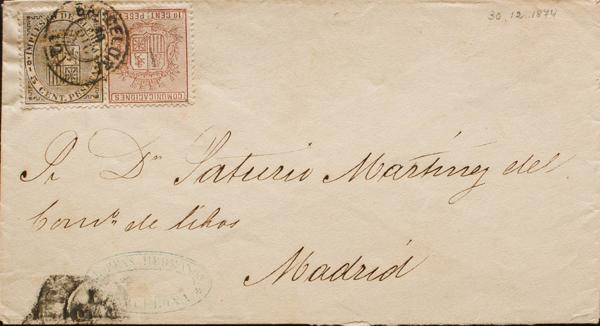 30.12.1874
IMPUESTO DE
5 CENT. PESETA
BARCELONA
10 CENT. PESETA
COMUNICACIONES
A Dn Saturio Martinez del
Comº de libos
Madrid
HERMANOS
BARCELONA